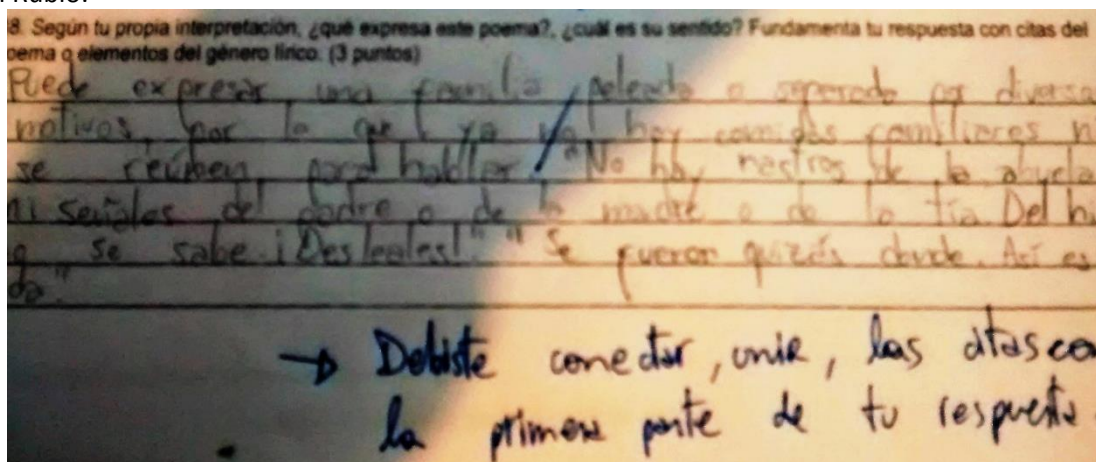 Rubio.
8. Según tu propia interpretación, ¿qué expresa este poema?, ¿cuál es su sentido? Fundamenta tu respuesta con citas del
oema o elementos del género lírico. (3 puntos)
Puede expresar una familia peleada o separada por diversa
motivos, por lo que ya no hay comidas familiares ni
se reúnen para hablar. "No hay rastros de la abuela
ni señales del padre o de la madre o de la tía. Del hi
se sabe ¡Desleales!" "Se fueron quizás donde. Así es
da."
→ Debiste conectar, unir, las citas co
la primera parte de tu respuesta